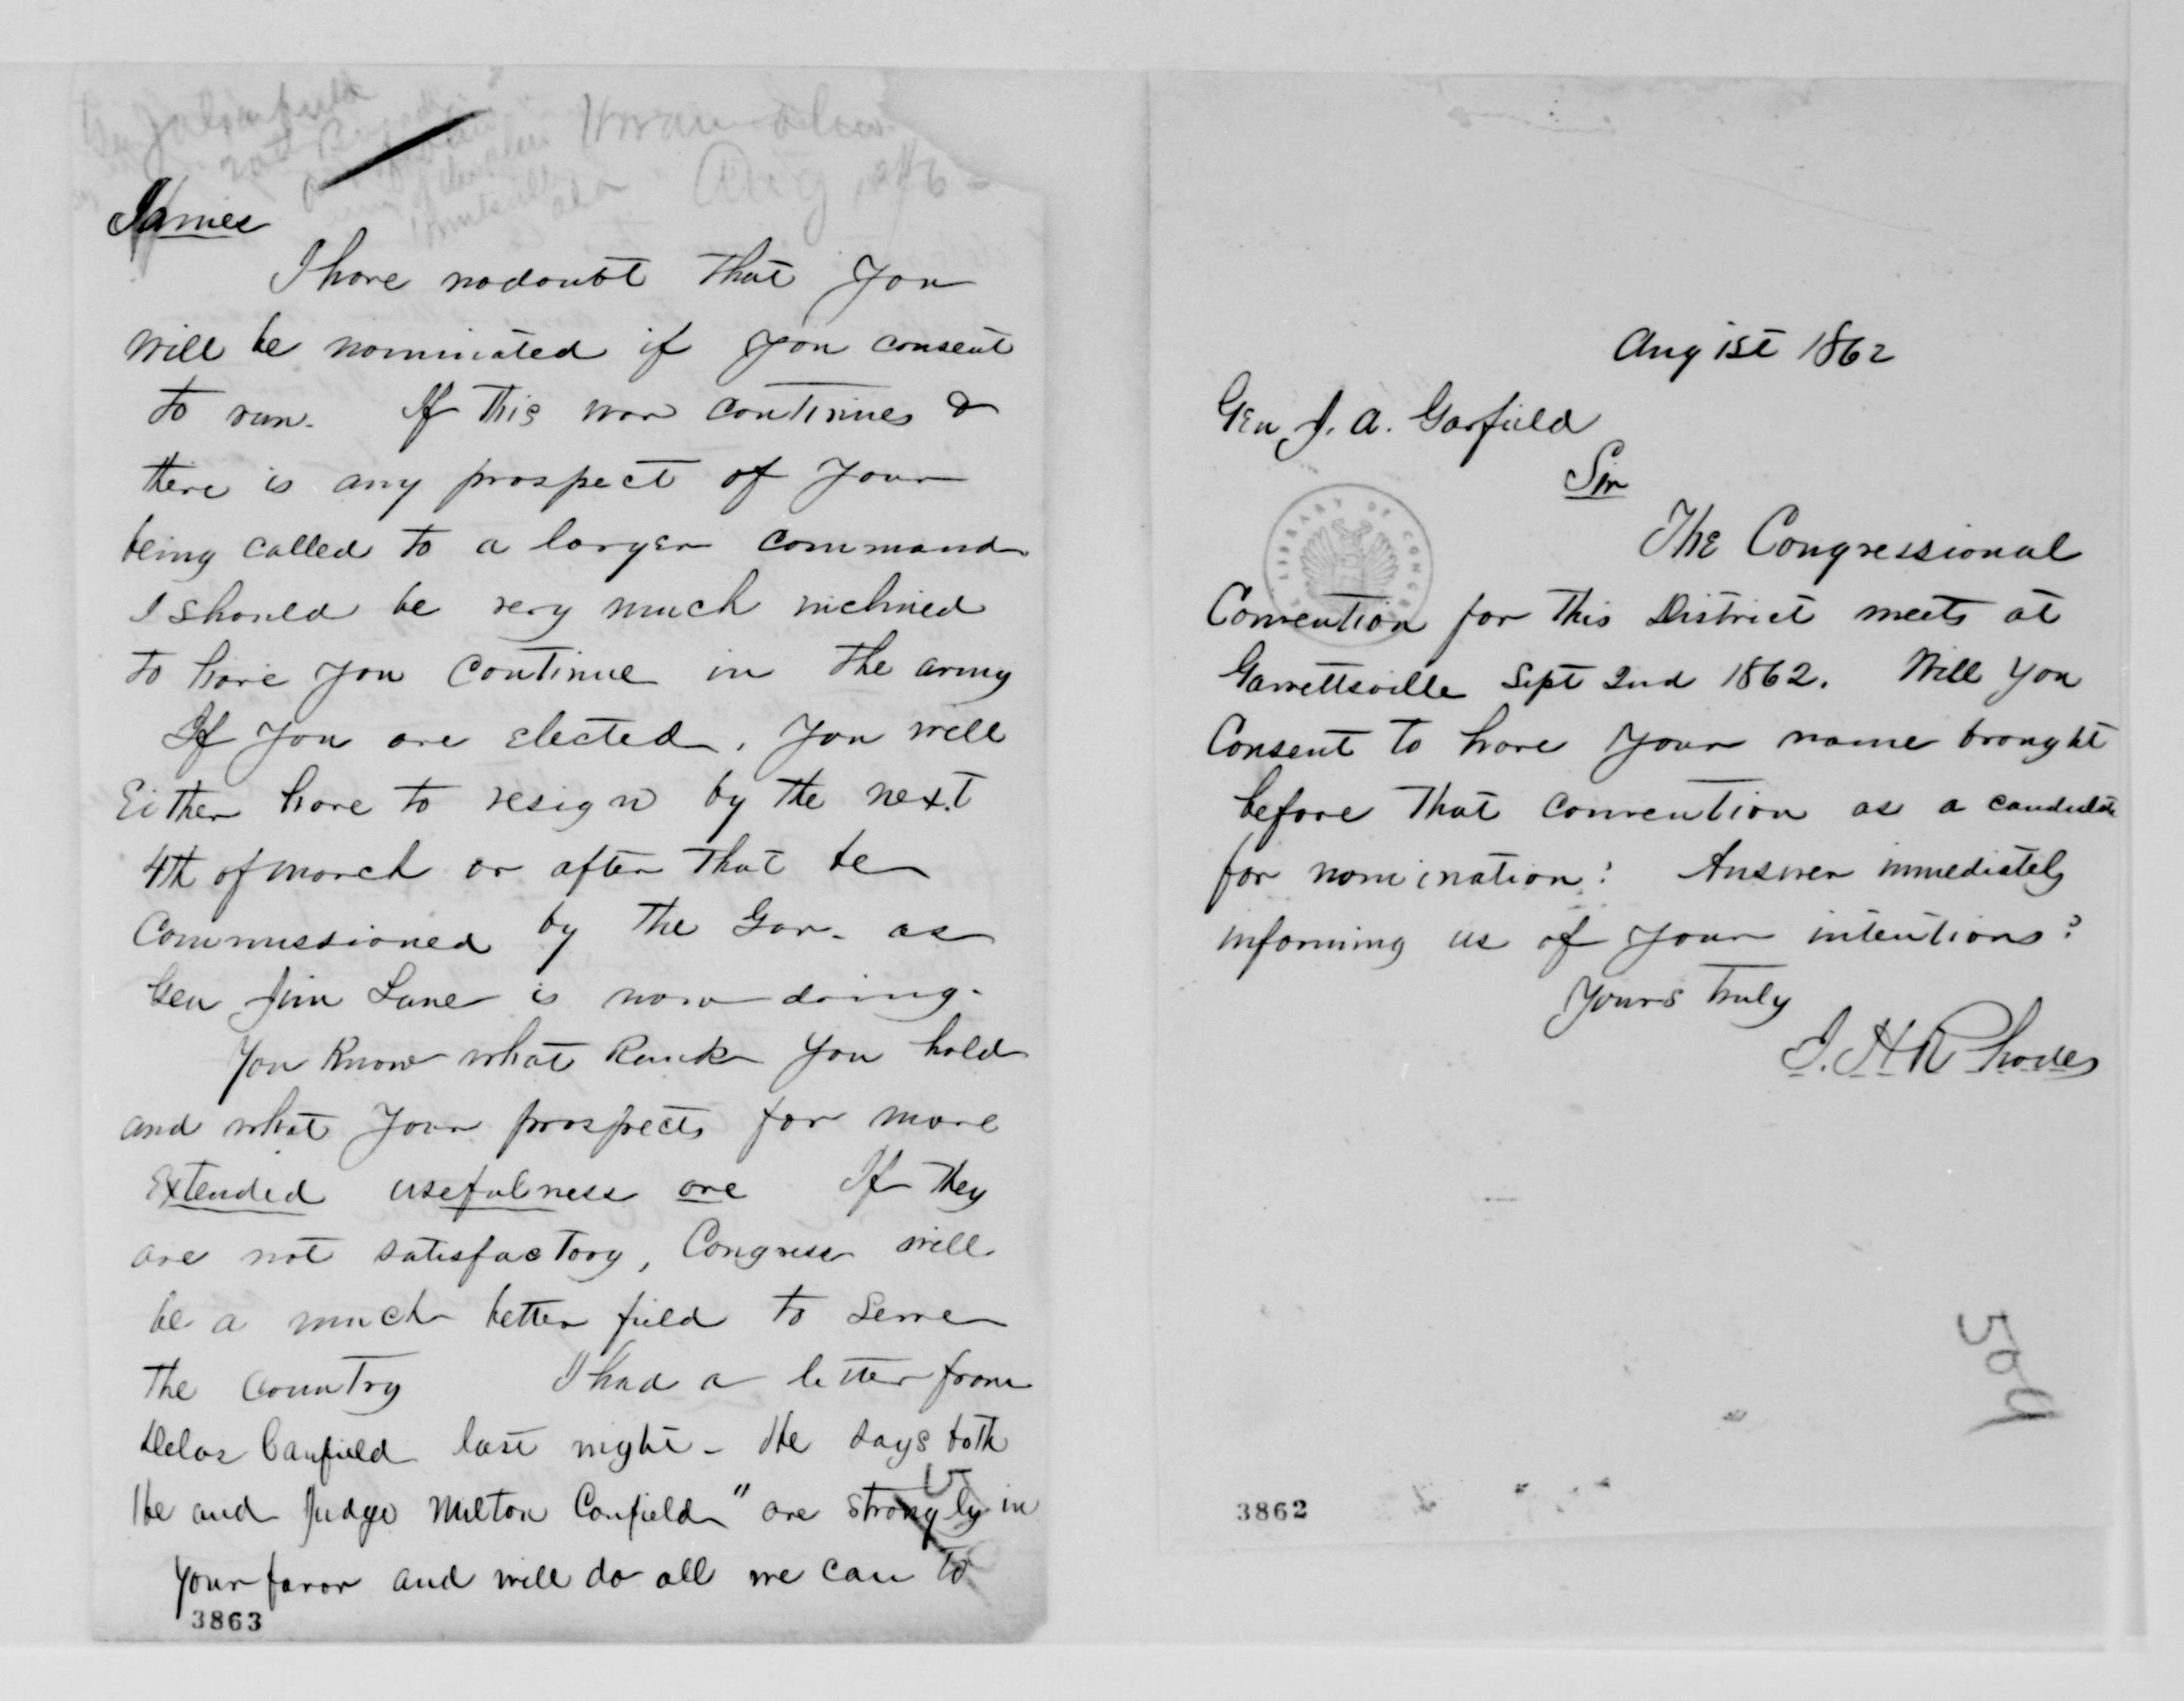 James
I have no doubt that you
will be nominated if you consent
to run. If this war continues &
there is any prospect of your
being called to a larger command
I should be very much inclined
to have you continue in the army
If you are elected, you will
Either have to resign by the next
4th of march or after that be
Commissioned by the Gov. as
Gen Jim Lane is now doing.
You know what Rank you hold
and what your prospects for more
extended usefulness are If they
are not satisfactory, Congress will
be a much better field to serve
the country I had a letter from
Delos Canfield last night - He says both
He and Judge Milton Canfield "are strongly in
your favor and will do all we can to
3863
Aug 1st 1862
Gen J. A. Garfield
Sir
LIBRARY OF CONGRESS
The Congressional
Convention for this District meets at
Garrettsville Sept 2nd 1862. Will you
Consent to have your name brought
before that convention as a candidate
for nomination? Answer immediately
informing us of your intentions?
Yours Truly
J. H Rhodes
509
3862